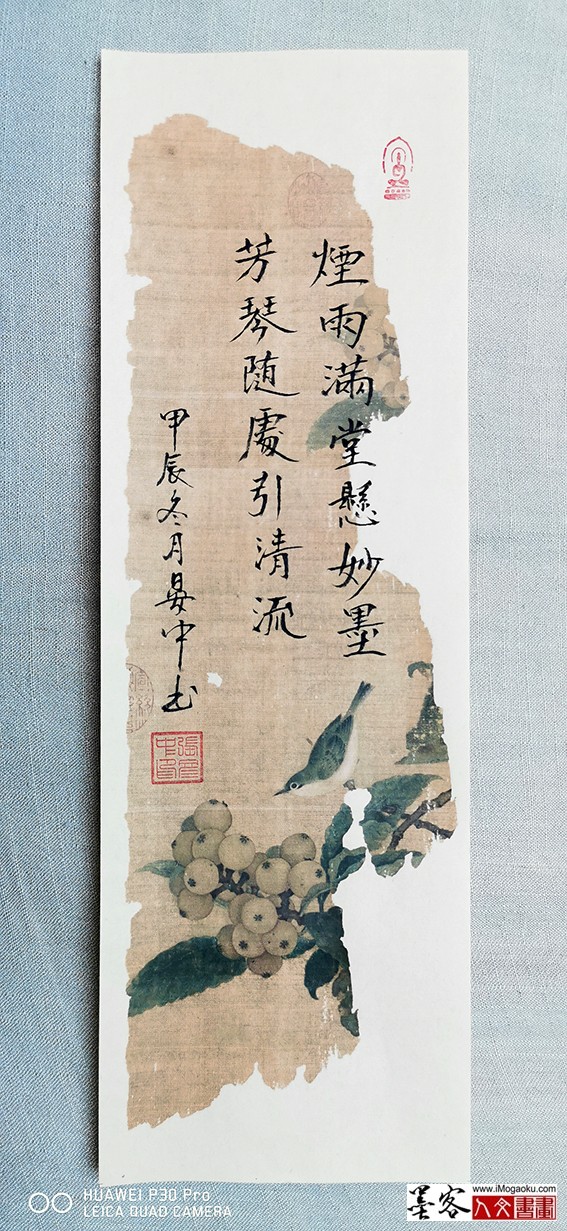 煙雨滿堂懸妙墨
芳琴随處引清流
甲辰冬月晏中書
HUAWEI P30 Pro
LEICA QUAD CAMERA
www.iMogaoku.com
墨客人文書畫